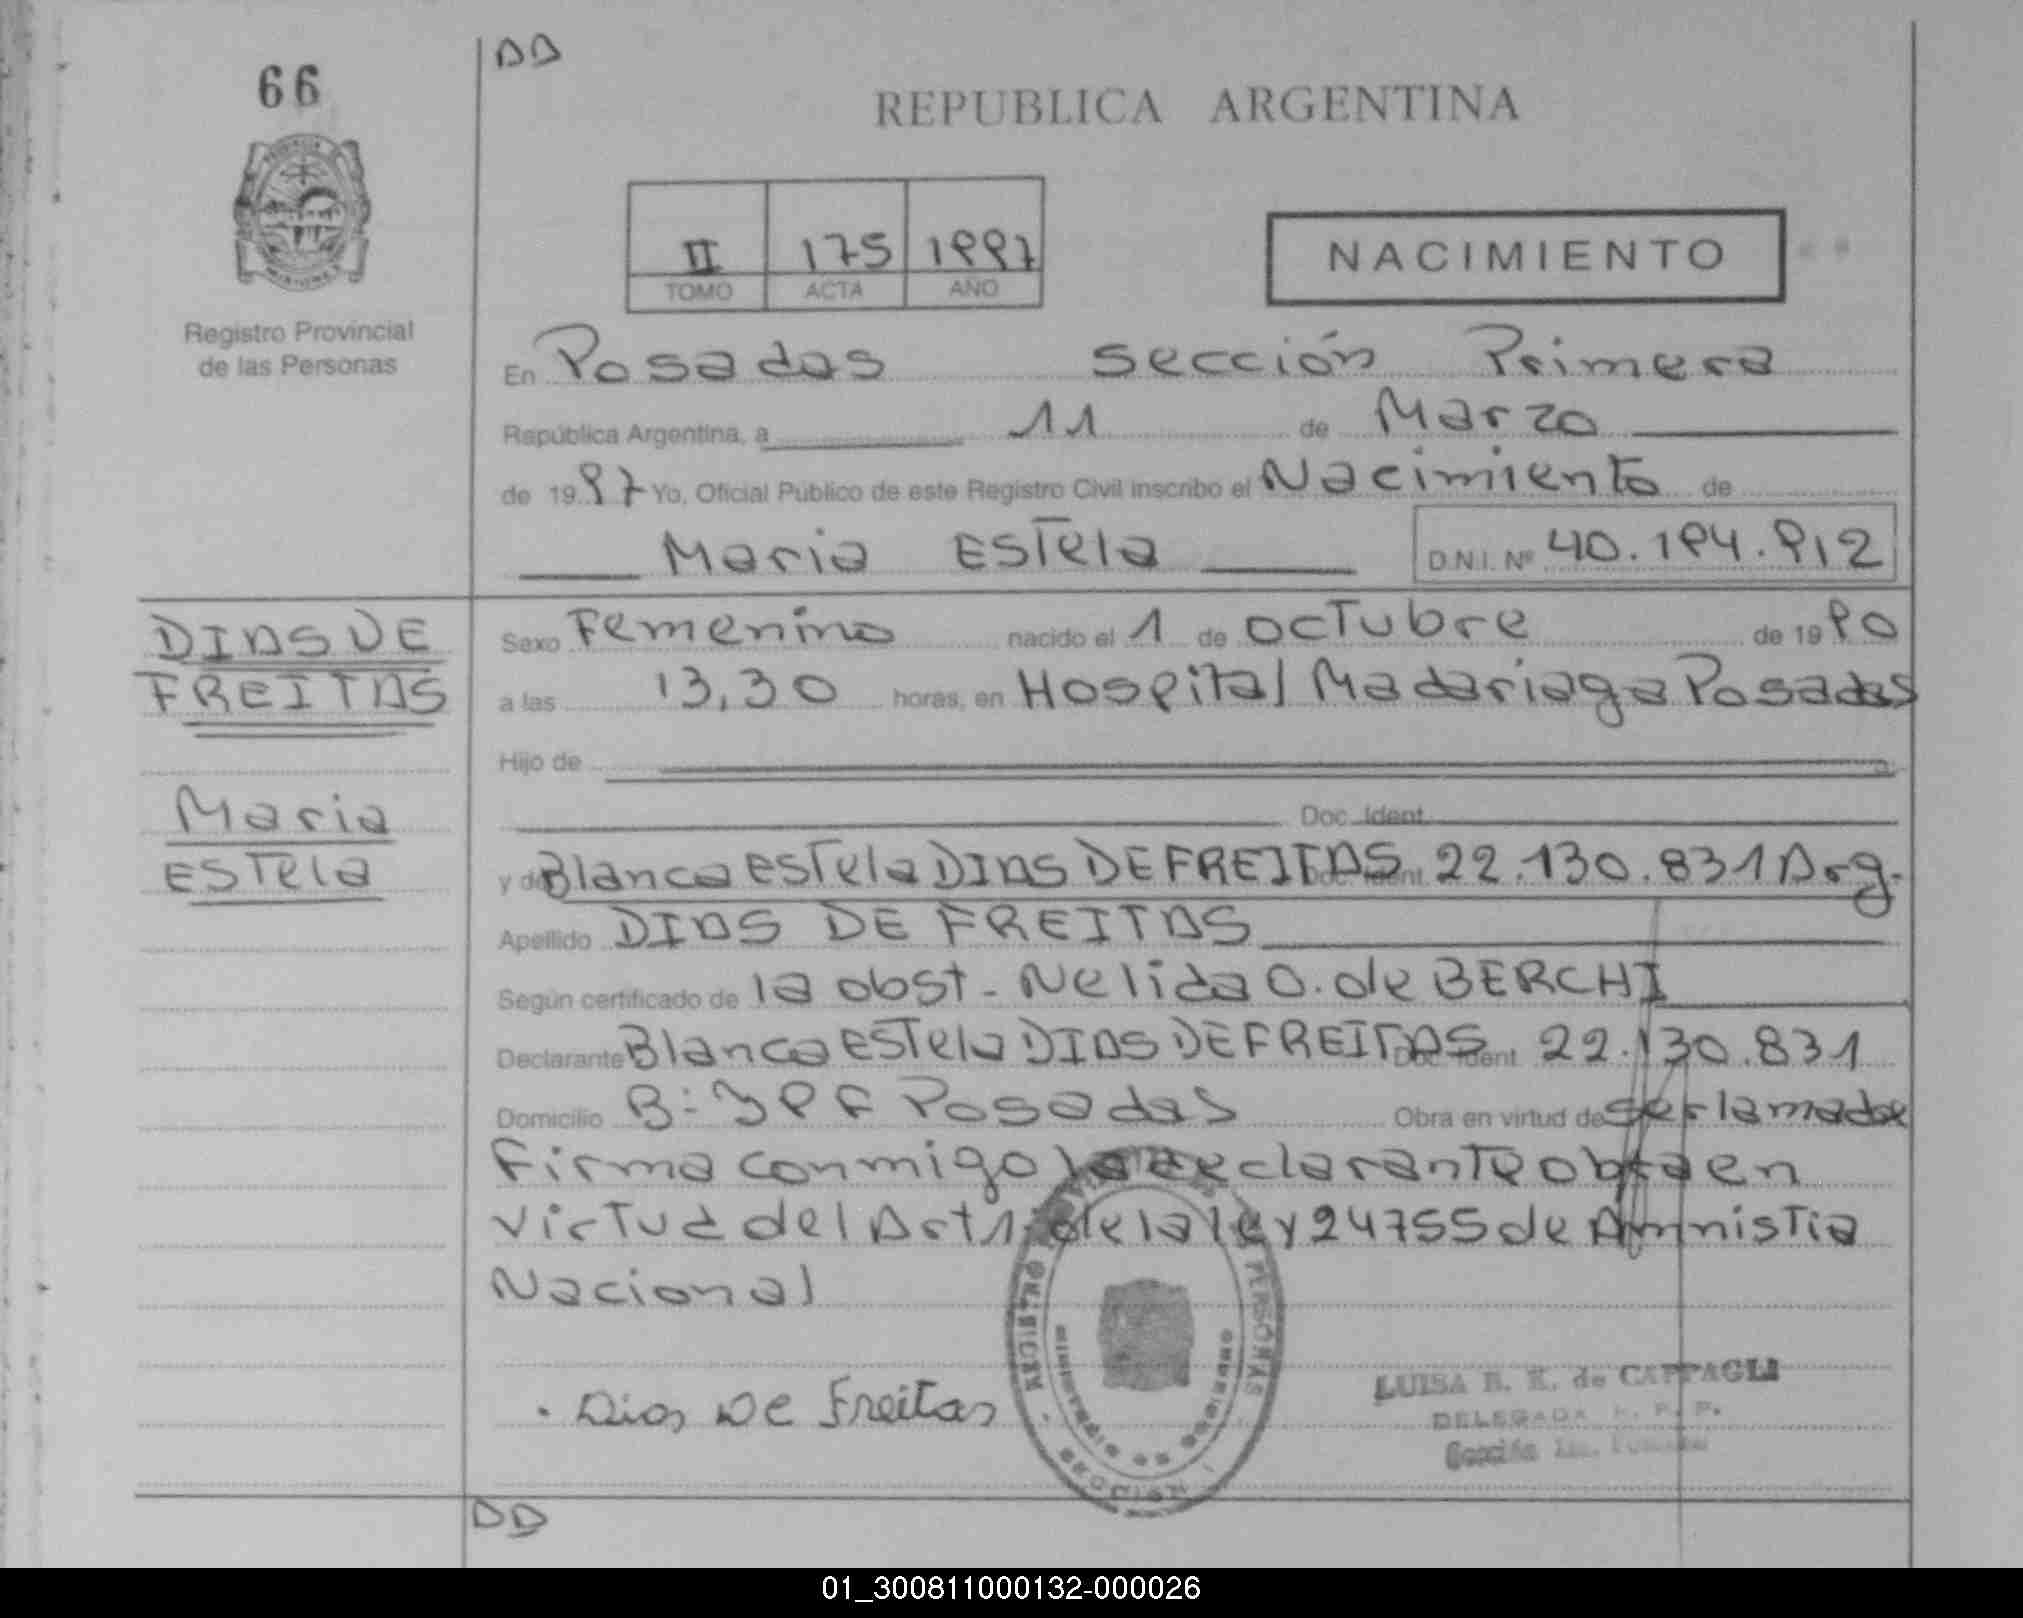 66
DD
REPUBLICA ARGENTINA
II 175 1997
TOMO ACTA AÑO
NACIMIENTO
Registro Provincial
de las Personas
En Posadas Sección Primera
República Argentina, a 11 de Marzo
de 1997 Yo, Oficial Público de este Registro Civil inscribo el Nacimiento de
Maria Estela D.N.I. Nº 40.194.912
DIAS DE
FREITAS
Maria
Estela
Sexo Femenino nacido el 1 de octubre de 1990
a las 13,30 horas, en Hospital Madariaga Posadas
Hijo de
Doc. Ident.
y de Blanca Estela DIAS DE FREITAS Doc. Ident. 22.130.831 Arg.
Apellido DIAS DE FREITAS
Según certificado de la obst. Nelida O. de BERCHI
Declarante Blanca Estela DIAS DE FREITAS Doc. Ident 22.130.831
Domicilio B: YPF Posadas Obra en virtud de ser la madre
Firma conmigo la declarante obra en
virtud del Art 1 de la ley 24755 de Amnistia
Nacional
Dias De Freitas
PERSONAS
MINISTERIO DE GOBIERNO
SECCION
LUISA E. K. de CAPPAGLI
DELEGADA R. P. P.
Sección
DD
01_300811000132-000026